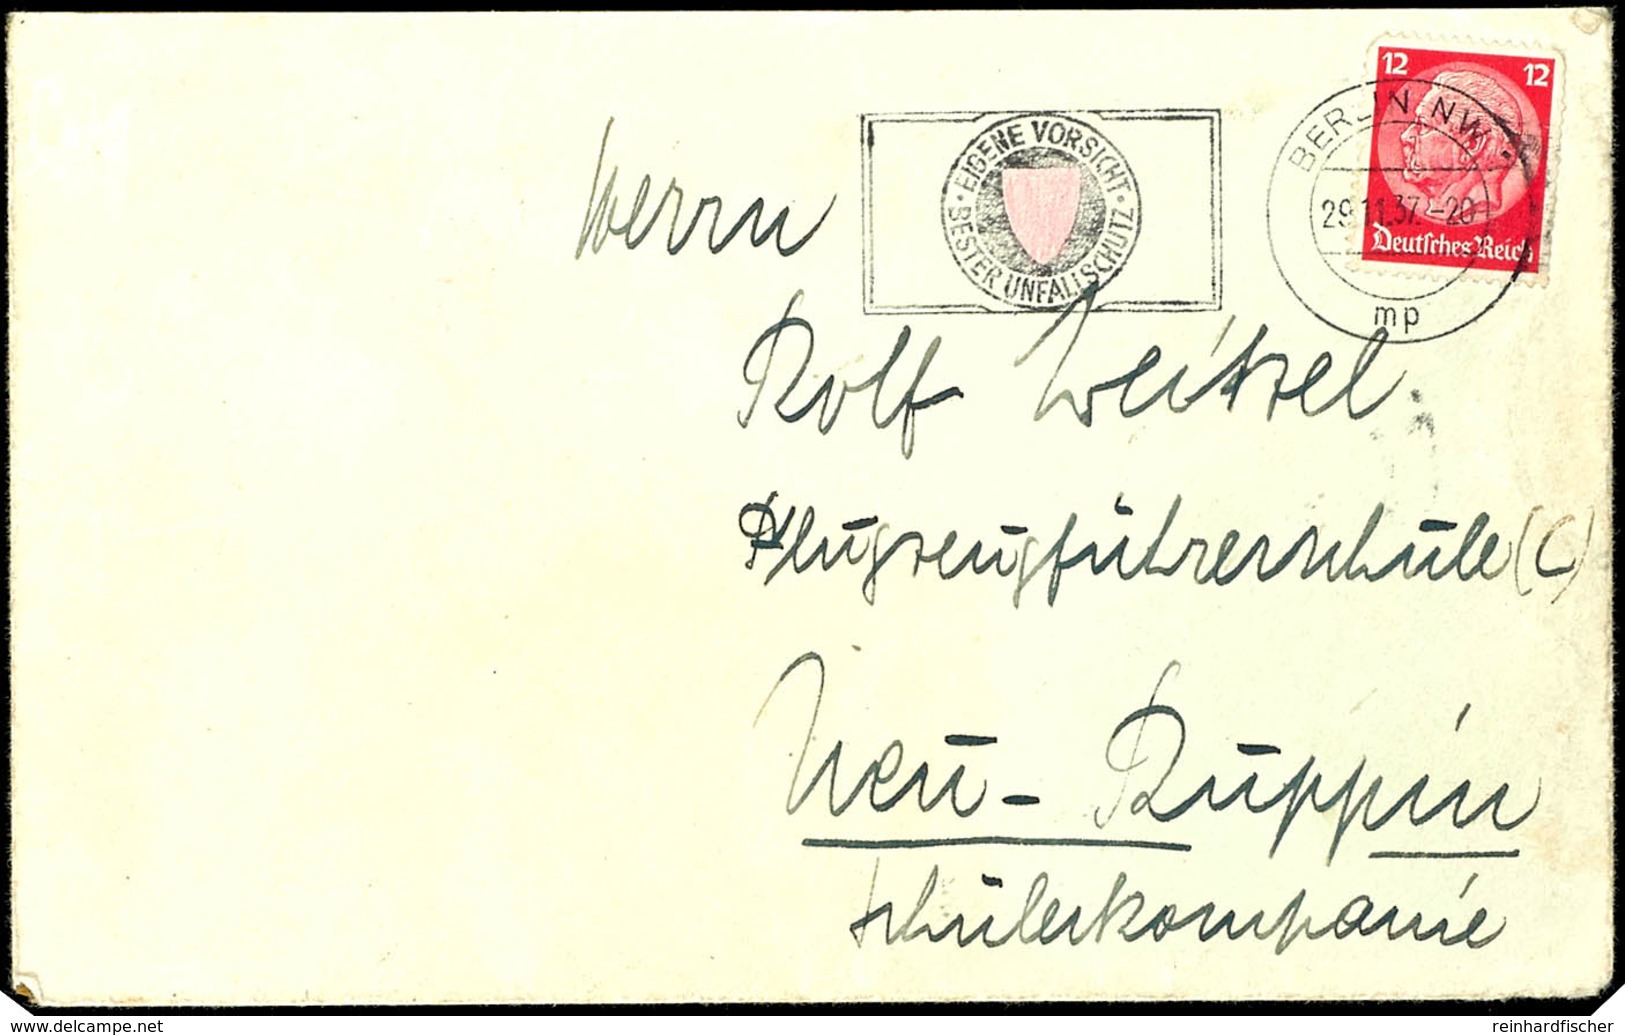 12 12
BERLIN NW
29.11.37.-20
Deutsches Reich
mp
EIGENE VORSICHT
BESTER UNFALLSCHUTZ
Herrn
Rolf Weitzel
Flugzeugführerschule (C)
Neu-Ruppin
Schülerkompanie
www.delcampe.net
reinhardfischer